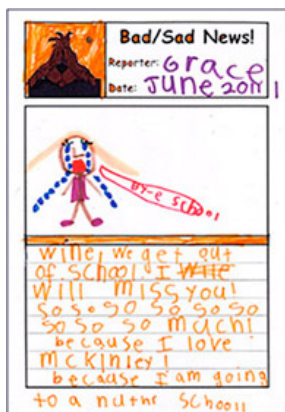 Bad/Sad News!
Reporter: Grace
Date: June 2011
BY-e School
wine, we get out
of school I Will
Will miss you!
so so so so so so so
so so so much!
because I love
mckinley!
because I am going
to a nuthr school